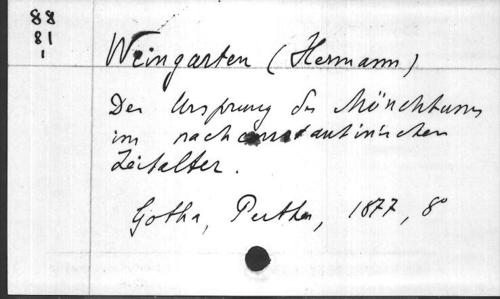 88
81
1
Weingarten (Hermann)
Der Ursprung des Mönchtums
im nachconstantinischen
Zeitalter.
Gotha, Perthes, 1877, 8°